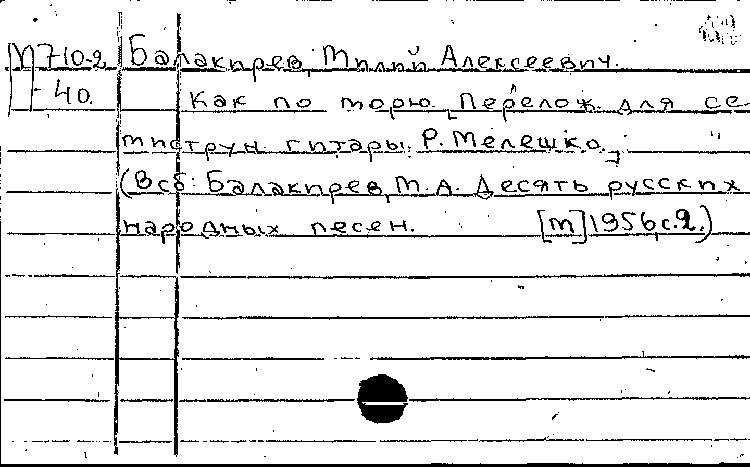 М 710-2 Балакирев, Милий Алексеевич.
40. Как по морю. [Перелож. для се-
миструн. гитары: Р. Мелешко.]
(В сб: Балакирев, М.А. Десять русских
народных песен. [М] 1956, с.2.)